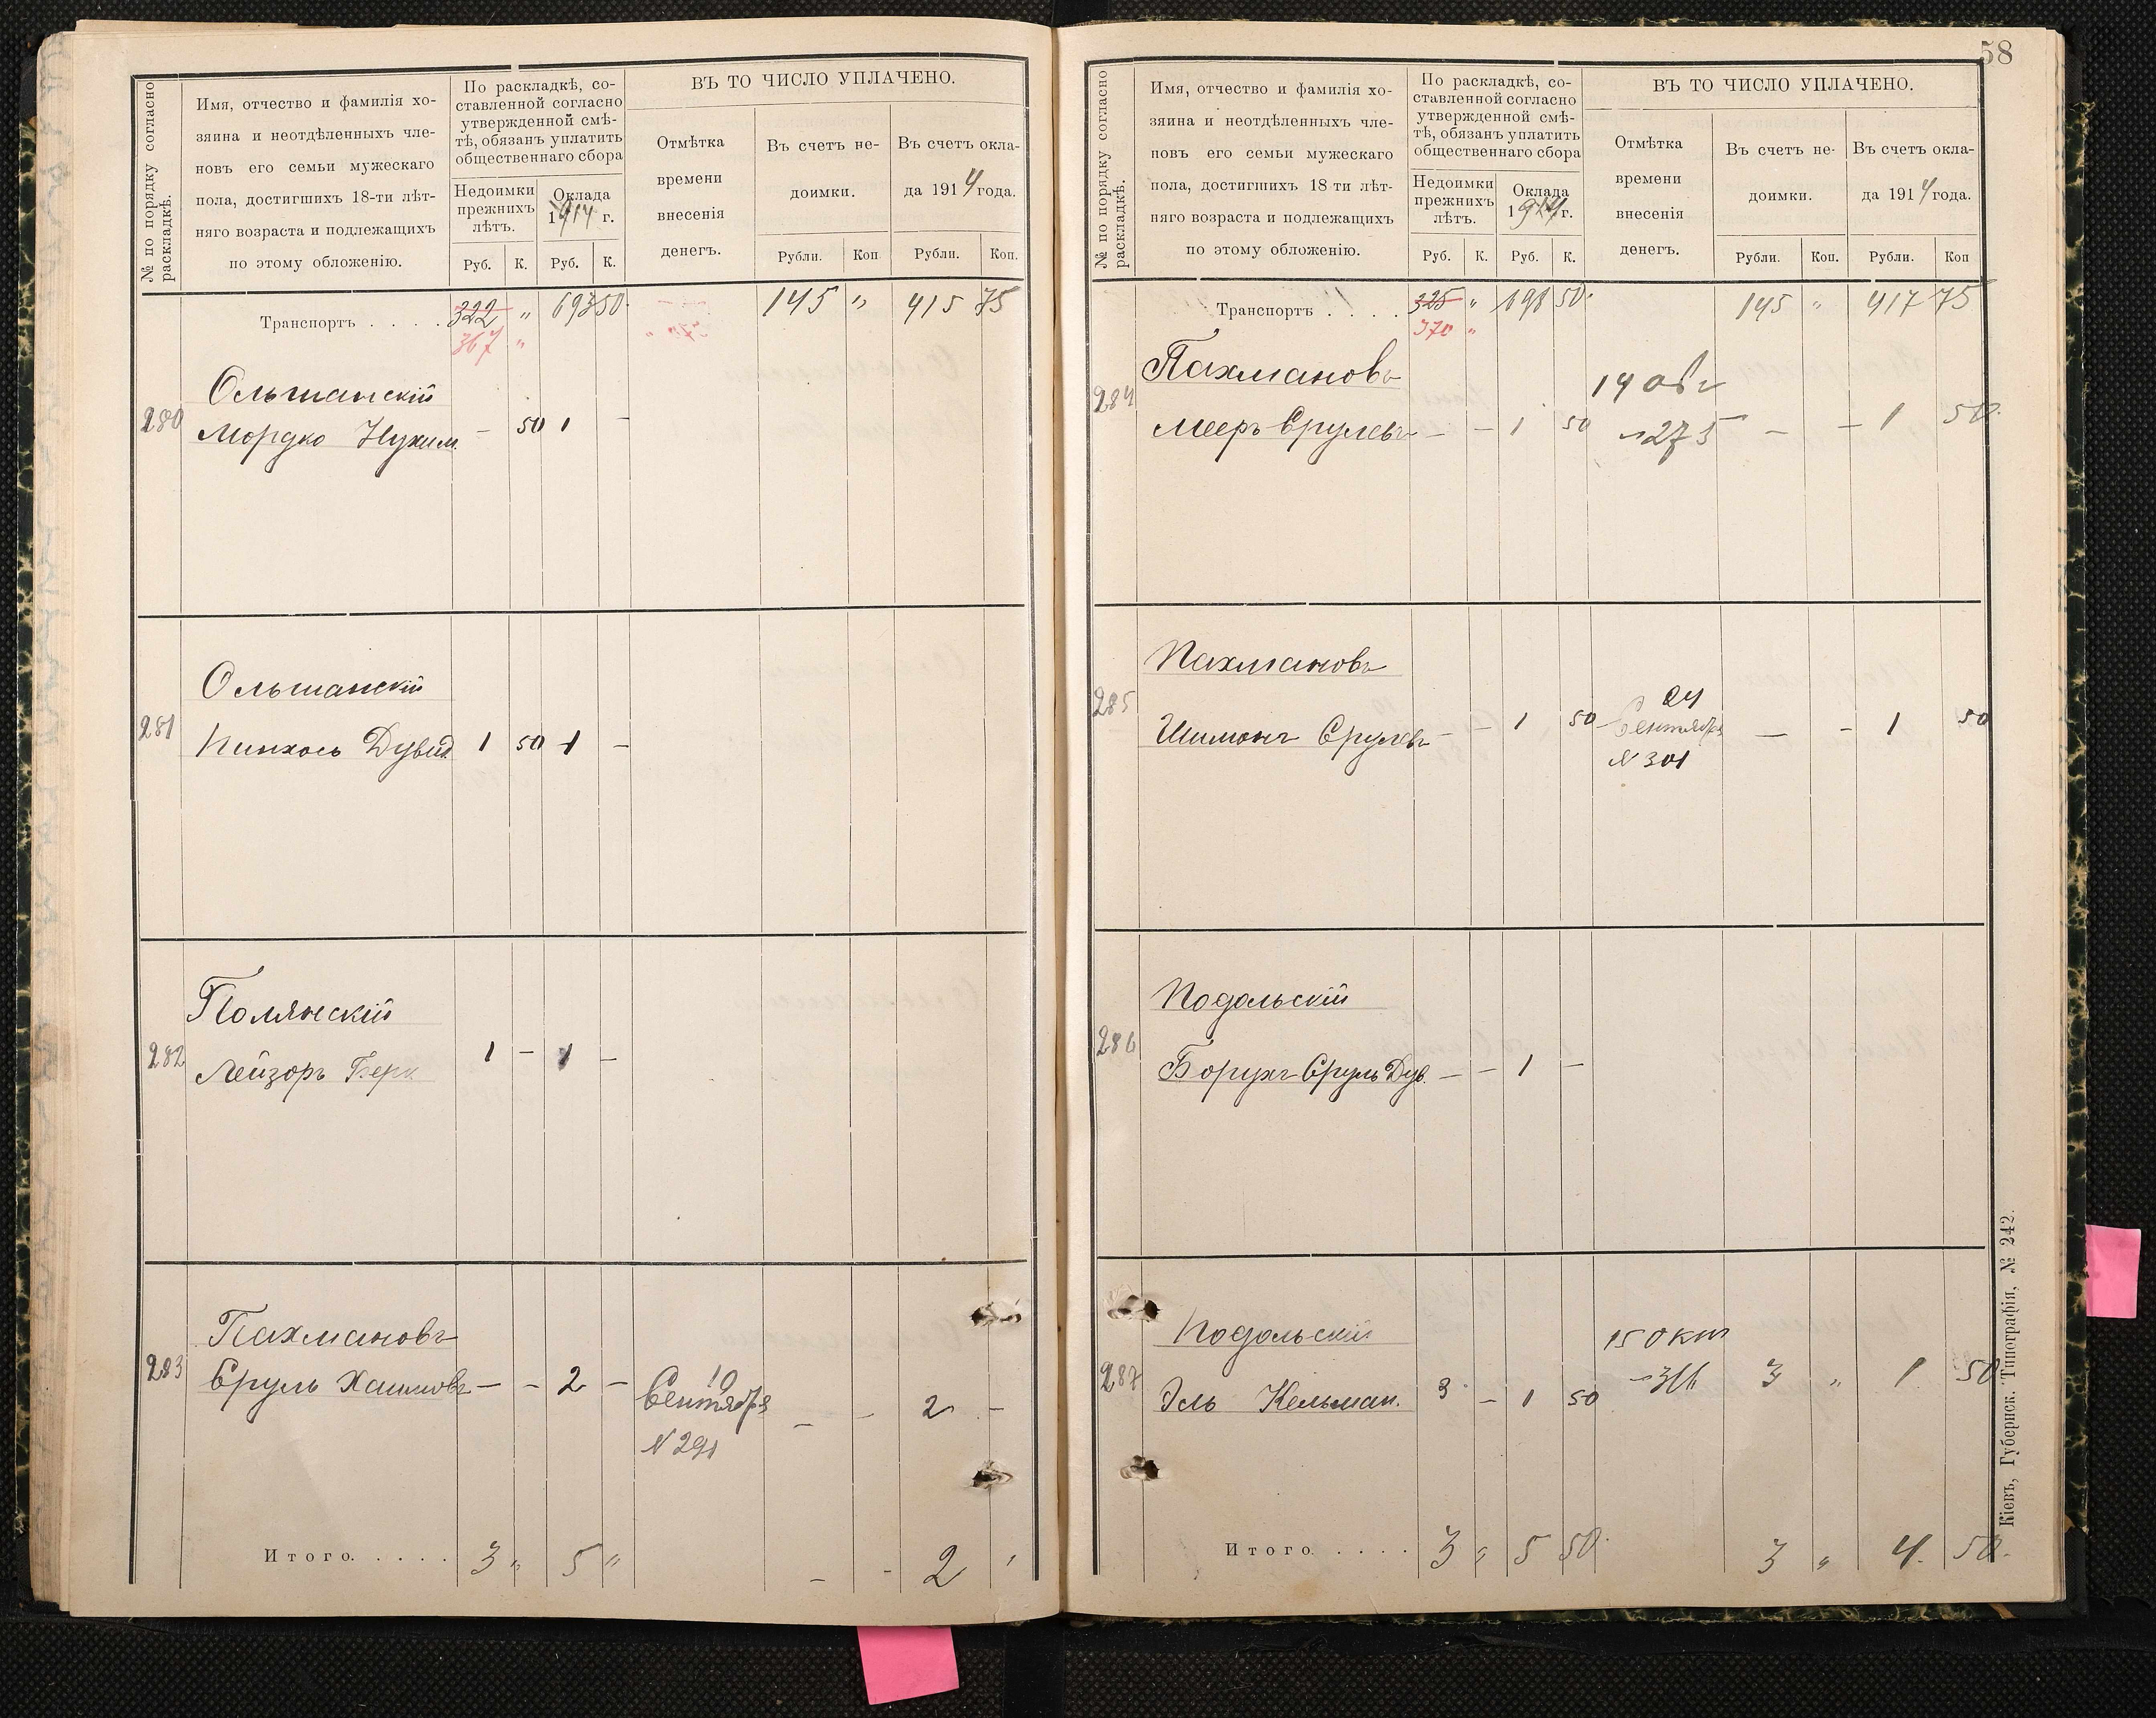 № по порядку согласно раскладкѣ.
Имя, отчество и фамилія хо-
зяина и неотдѣленныхъ чле-
новъ его семьи мужескаго
пола, достигшихъ 18-ти лѣт-
няго возраста и подлежащихъ
по этому обложенію.
По раскладкѣ, со-
ставленной согласно
утвержденной смѣ-
тѣ, обязанъ уплатить
общественнаго сбора
Недоимки
прежнихъ
лѣтъ.
Оклада
1914 г.
Руб. К. Руб. К.
ВЪ ТО ЧИСЛО УПЛАЧЕНО.
Отмѣтка
времени
внесенія
денегъ.
Въ счетъ не-
доимки.
Въ счетъ окла-
да 1914 года.
Рубли. Коп Рубли. Коп.
Транспортъ . . . . 322 " 693 50 145 " 415 75
367 "
Ольшанскій
280 Мордко Нухим. - 50 1 -
Ольшанскій
281 Пинхось Дувид. 1 50 1 -
Полянскій
282 Лейзоръ Берк 1 - 1 -
Пахмановъ
283 Сруль Хаимовъ - - 2 - 10 Сентября - - 2 -
N 291
Итого. . . . . 3 " 5 " - - 2 "
58
№ по порядку согласно раскладкѣ.
Имя, отчество и фамилія хо-
зяина и неотдѣленныхъ чле-
новъ его семьи мужескаго
пола, достигшихъ 18 ти лѣт-
няго возраста и подлежащихъ
по этому обложенію.
По раскладкѣ, со-
ставленной согласно
утвержденной смѣ-
тѣ, обязанъ уплатить
общественнаго сбора
Недоимки
прежнихъ
лѣтъ.
Оклада
1914 г.
Руб. К. Руб. К.
ВЪ ТО ЧИСЛО УПЛАЧЕНО.
Отмѣтка
времени
внесенія
денегъ.
Въ счетъ не-
доимки.
Въ счетъ окла-
да 1914 года.
Рубли. Коп. Рубли. Коп
Транспортъ . . . . 325 " 698 50 145 " 417 75
370 "
Пахмановъ
284 Мееръ Срулевъ - - 1 50 275 - - 1 50
Пахмановъ
285 Шимонъ Срулевъ - - 1 50 24 Сентября - - 1 50
N 301
Подольскій
286 Борухъ Сруль Дув. - - 1 -
Подольскій
15 Окт
287 Эль Кельман. 3 - 1 50 3 " 1 50
Итого. . . . . 3 " 5 50 3 " 4 50
Кіевъ, Губернск. Типографія, № 242.